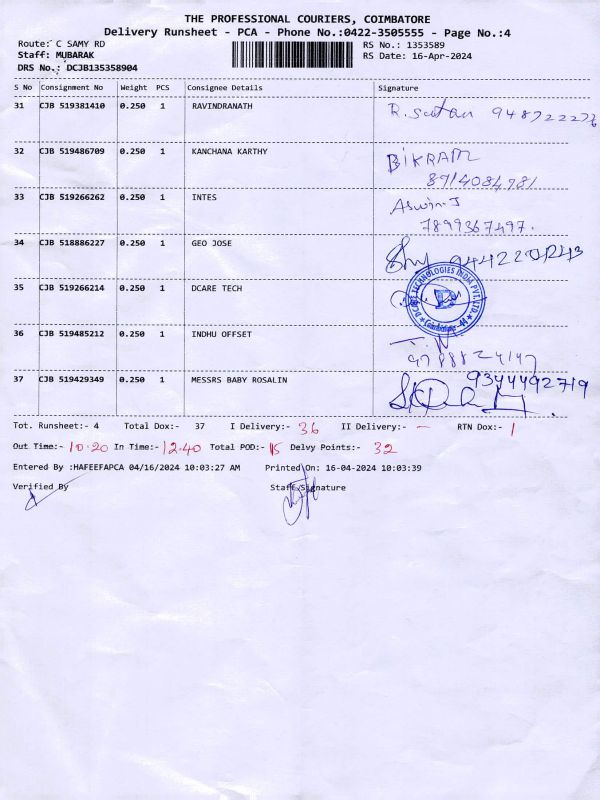 THE PROFESSIONAL COURIERS, COIMBATORE
Delivery Runsheet - PCA - Phone No.:0422-3505555 - Page No.:4
Route: C SAMY RD RS No.: 1353589
Staff: MUBARAK RS Date: 16-Apr-2024
DRS No.: DCJB135358904
S No Consignment No Weight PCS Consignee Details Signature
31 CJB 519381410 0.250 1 RAVINDRANATH
32 CJB 519486709 0.250 1 KANCHANA KARTHY BIKRAM
8914084781
33 CJB 519266262 0.250 1 INTES Aswin.J
7899367497.
34 CJB 518886227 0.250 1 GEO JOSE
35 CJB 519266214 0.250 1 DCARE TECH DCARE TECHNOLOGIES INDIA PVT. LTD. Coimbatore - 44
36 CJB 519485212 0.250 1 INDHU OFFSET
37 CJB 519429349 0.250 1 MESSRS BABY ROSALIN 9344492719
Tot. Runsheet:- 4 Total Dox:- 37 I Delivery:- 36 II Delivery:- - RTN Dox:- 1
Out Time:- 10.20 In Time:- 12.40 Total POD:- 15 Delvy Points:- 32
Entered By :HAFEEFAPCA 04/16/2024 10:03:27 AM Printed On: 16-04-2024 10:03:39
Verified By Staff Signature